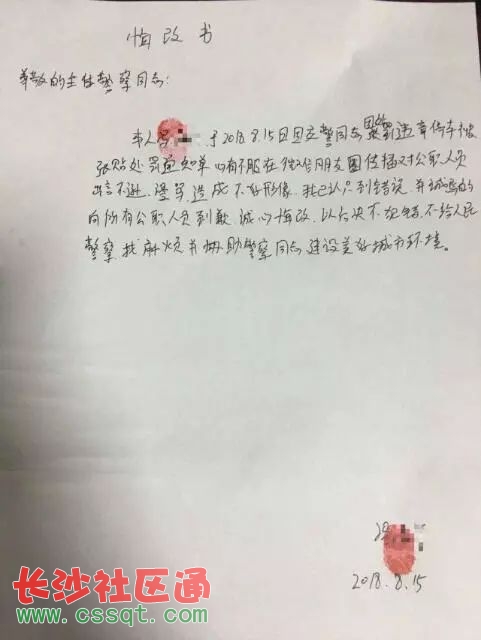 悔改书
尊敬的主任警察同志：
本人冯 于2018.8.15日因交警同志 违章停车被
张贴处罚通知单心有不服在微信朋友圈传播对公职人员
出言不逊.漫骂造成不好影像.我已认识到错误.并诚恳的
向所有公职人员到歉.诚心悔改.以后决不犯错.不给人民
警察找麻烦并帮助警察同志建设美好城市环境。
冯
2018.8.15
长沙社区通
www.cssqt.com